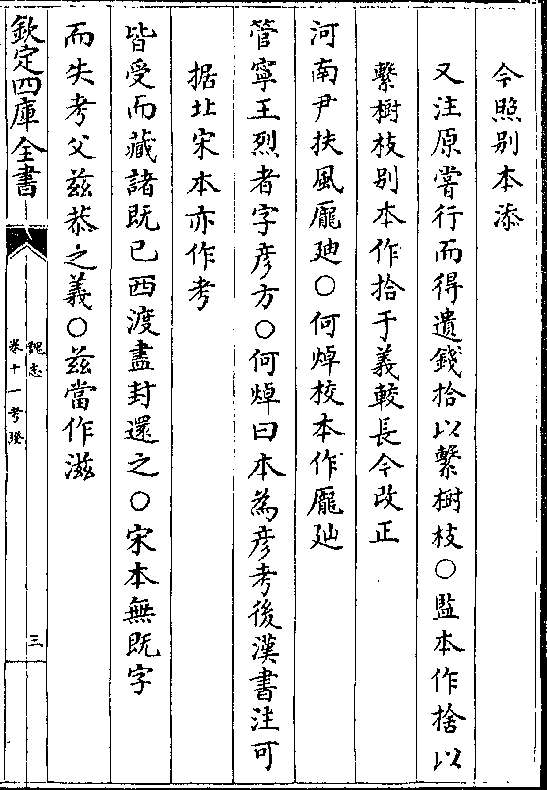 今照别本添
又注原嘗行而得遺錢拾以繫樹枝○監本作捨以
繫樹枝别本作拾于義較長今改正
河南尹扶風龎廸○何焯校本作龎𨑳
管寧王烈者字彦方○何焯曰本為彦考後漢書注可
据北宋本亦作考
皆受而藏諸既已西渡盡封還之○宋本無既字
而失考父兹恭之義○兹當作滋
欽定四庫全書
魏志
卷十一考證
三